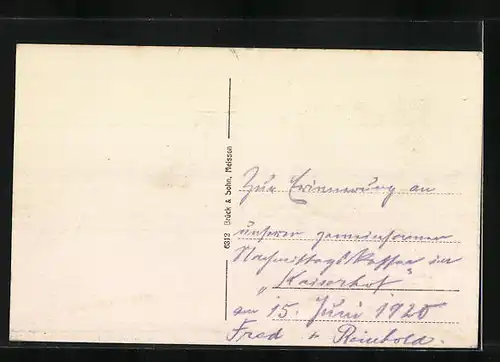 6312 Brück & Sohn, Meissen
Zur Erinnerung an
unserer gemeinsamen
Nachmittagskaffee im
„Kaiserhof"
am 15. Juni 1920
Fred u Reinhold.